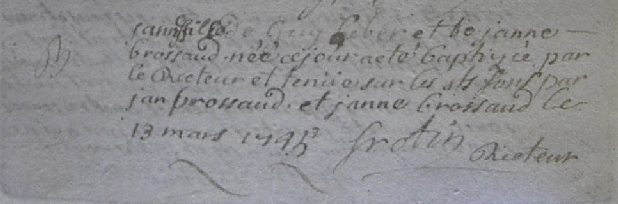 jann fille de Guy heber et de janne
brossaud née ce jour a eté baptisée par
le Recteur et tenüe sur les sts fons par
jan brossaud et janne brossaud le
13 mars
Recteur